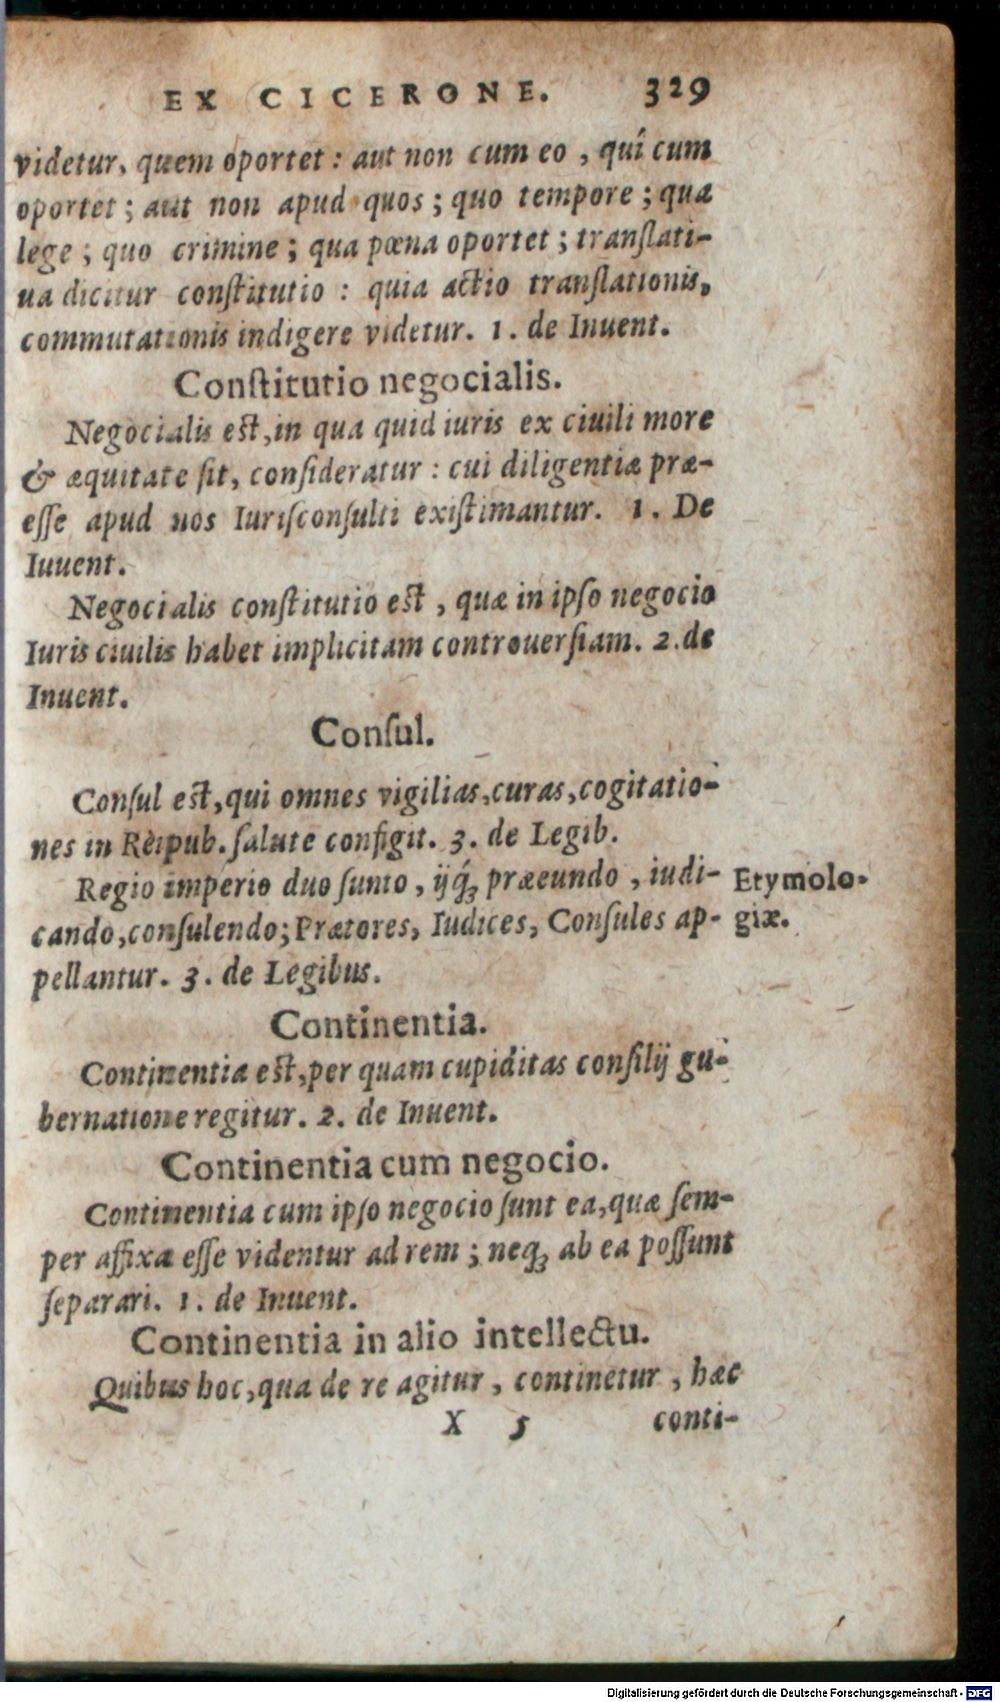 EX CICERONE. 329
videtur, quem oportet : aut non cum eo , quí cum
oportet ; aut non apud quos ; quo tempore ; qua
lege ; quo crimine ; qua pœna oportet ; translati-
ua dicitur constitutio : quia actio translationis,
commutationis indigere videtur. 1. de Inuent.
Constitutio negocialis.
Negocialis est, in qua quid iuris ex ciuili more
& æquitate sit, consideratur : cui diligentiæ præ-
esse apud nos Iurisconsulti existimantur. 1. De
Iuuent.
Negocialis constitutio est , quæ in ipso negocio
Iuris ciuilis habet implicitam controuersiam. 2. de
Inuent.
Consul.
Consul est, qui omnes vigilias, curas, cogitatio-
nes in Rèipub. salute configit. 3. de Legib.
Regio imperio duo sunto , ijq́ꝫ præeundo , iudi-
Etymolo-
cando, consulendo; Prætores, Iudices, Consules ap-
giæ.
pellantur. 3. de Legibus.
Continentia.
Continentia est, per quam cupiditas consilij gu-
bernatione regitur. 2. de Inuent.
Continentia cum negocio.
Continentia cum ipso negocio sunt ea, quæ sem-
per affixa esse videntur ad rem ; neqꝫ ab ea possunt
separari. 1. de Inuent.
Continentia in alio intellectu.
Quibus hoc, qua de re agitur , continetur , hæc
X 5 conti-
Digitalisierung gefördert durch die Deutsche Forschungsgemeinschaft - DFG